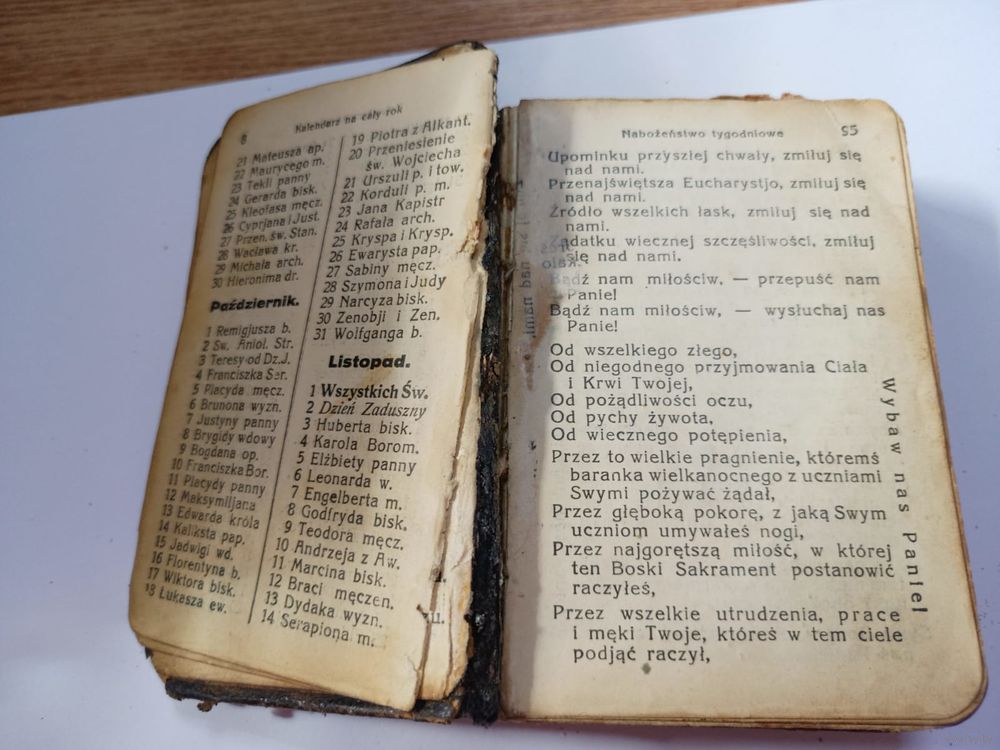 8
Kalendarz na cały rok
21 Mateusza ap.
22 Maurycego m.
23 Tekli panny
24 Gerarda bisk.
25 Kleofasa męcz.
26 Cyprjana i Just.
27 Przen. św. Stan.
28 Wacława kr.
29 Michała arch.
30 Hieronima dr.
Październik.
1 Remigjusza b.
2 Św. Aniol. Str.
3 Teresy od Dz. J.
4 Franciszka Ser.
5 Placyda męcz.
6 Brunona wyzn.
7 Justyny panny
8 Brygidy wdowy
9 Bogdana op.
10 Franciszka Bor.
11 Placydy panny
12 Maksymiljana
13 Edwarda króla
14 Kaliksta pap.
15 Jadwigi wd.
16 Florentyna b.
17 Wiktora bisk.
18 Łukasza ew.
19 Piotra z Alkant.
20 Przeniesienie
św. Wojciecha
21 Urszuli p. i tow.
22 Korduli p. m.
23 Jana Kapistr
24 Rafała arch.
25 Kryspa i Krysp.
26 Ewarysta pap.
27 Sabiny męcz.
28 Szymona i Judy
29 Narcyza bisk.
30 Zenobji i Zen.
31 Wolfganga b.
Listopad.
1 Wszystkich Św.
2 Dzień Zaduszny
3 Huberta bisk.
4 Karola Borom.
5 Elżbiety panny
6 Leonarda w.
7 Engelberta m.
8 Godfryda bisk.
9 Teodora męcz.
10 Andrzeja z Aw.
11 Marcina bisk.
12 Braci męczen.
13 Dydaka wyzn.
14 Serapiona m.
Nabożeństwo tygodniowe
95
Upominku przyszłej chwały, zmiłuj się
nad nami.
Przenajświętsza Eucharystjo, zmiłuj się
nad nami.
Źródło wszelkich łask, zmiłuj się nad
nami.
Zadatku wiecznej szczęśliwości, zmiłuj
się nad nami.
Bądź nam miłościw, — przepuść nam
Panie!
Bądź nam miłościw, — wysłuchaj nas
Panie!
Od wszelkiego złego,
Od niegodnego przyjmowania Ciała
i Krwi Twojej,
Od pożądliwości oczu,
Od pychy żywota,
Od wiecznego potępienia,
Przez to wielkie pragnienie, któremś
baranka wielkanocnego z uczniami
Swymi pożywać żądał,
Przez głęboką pokorę, z jaką Swym
uczniom umywałeś nogi,
Przez najgorętszą miłość, w której
ten Boski Sakrament postanowić
raczyłeś,
Przez wszelkie utrudzenia, prace
i męki Twoje, któreś w tem ciele
podjąć raczył,
Wybaw nas Panie!